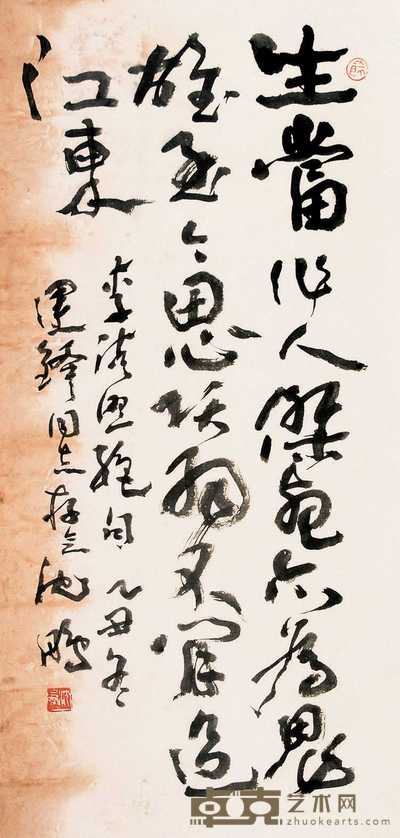 生當作人傑死亦為鬼
雄至今思項羽不肯過
江東
李清照絶句 乙丑冬
運鐸同志存念 沈鵬
卓克艺术网
zhuokearts.com